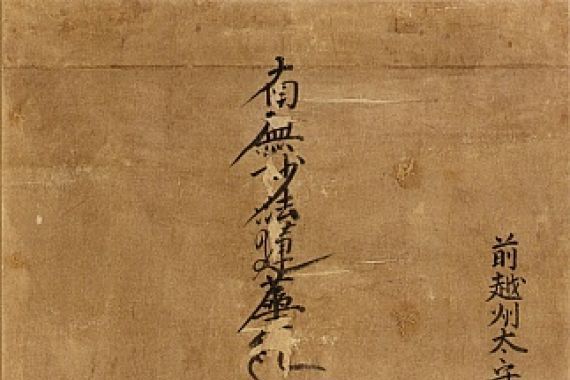 前越州太守
南無妙法蓮華